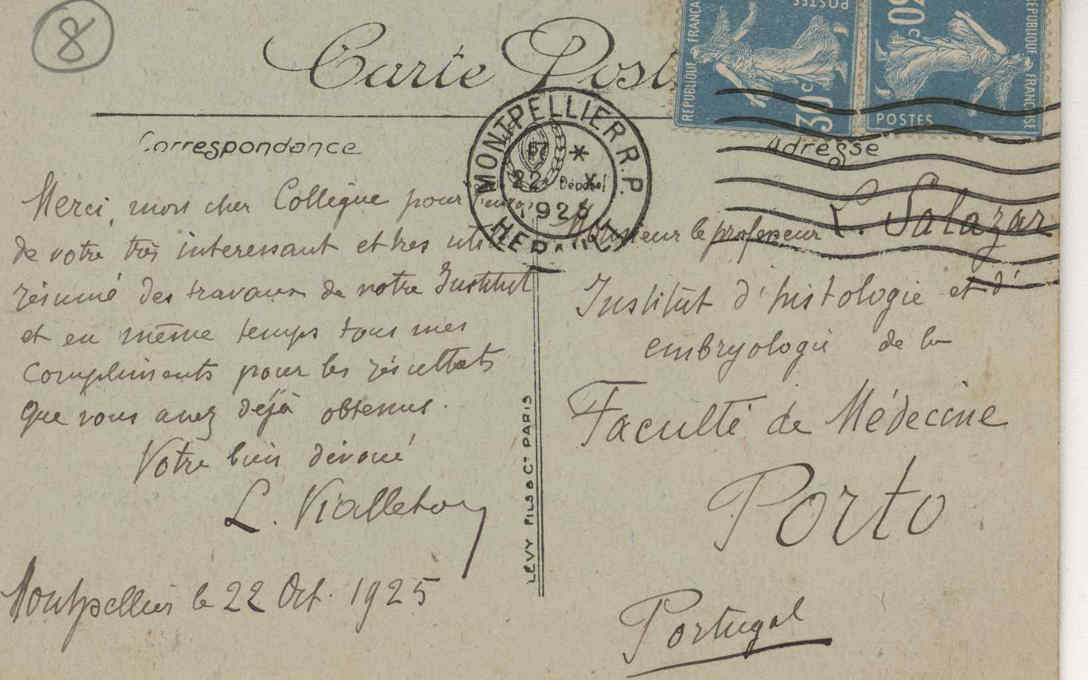 8
Carte Post
RÉPUBLIQUE FRANÇAISE
POSTES
30c
RÉPUBLIQUE FRANÇAISE
POSTES
30c
Correspondance
Adresse
MONTPELLIER R.P.
22 X
1925
HERAULT
Merci, mon cher Collègue pour l'envoi
de votre très interessant et tres utile
résumé des travaux de votre Institut
et en même temps tous mes
compliments pour les résultats
que vous avez déjà obtenus.
Votre bien dévoué
L. Vialleton
Montpellier le 22 Oct. 1925
LÉVY FILS & Cie PARIS
Monsieur le professeur L. Salazar
Institut d'histologie et d'
embryologie de la
Faculté de Médecine
Porto
Portugal